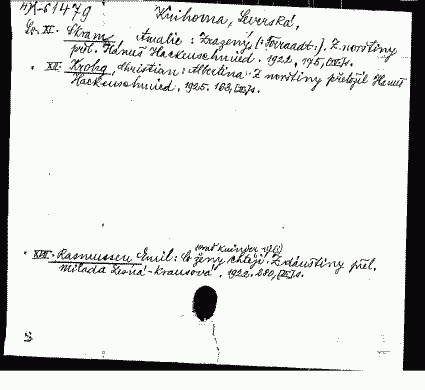 4K-61479
Knihovna, Severská,
Sv. XI. Skram, Amalie: Zrazený (:Forraadt:). Z norštiny
přel. Hanuš Hackenschmied. 1922, 175, [IX] s.
XII. Krohg, Christian: Albertina. Z norštiny přeložil Hanuš
Hackenschmied. 1925. 163, s.
XVII. Rasmussen Emil: Co ženy chtějí. Z dánštiny přel.
Milada Lesná-Krausová. 1922. 280, s.
S